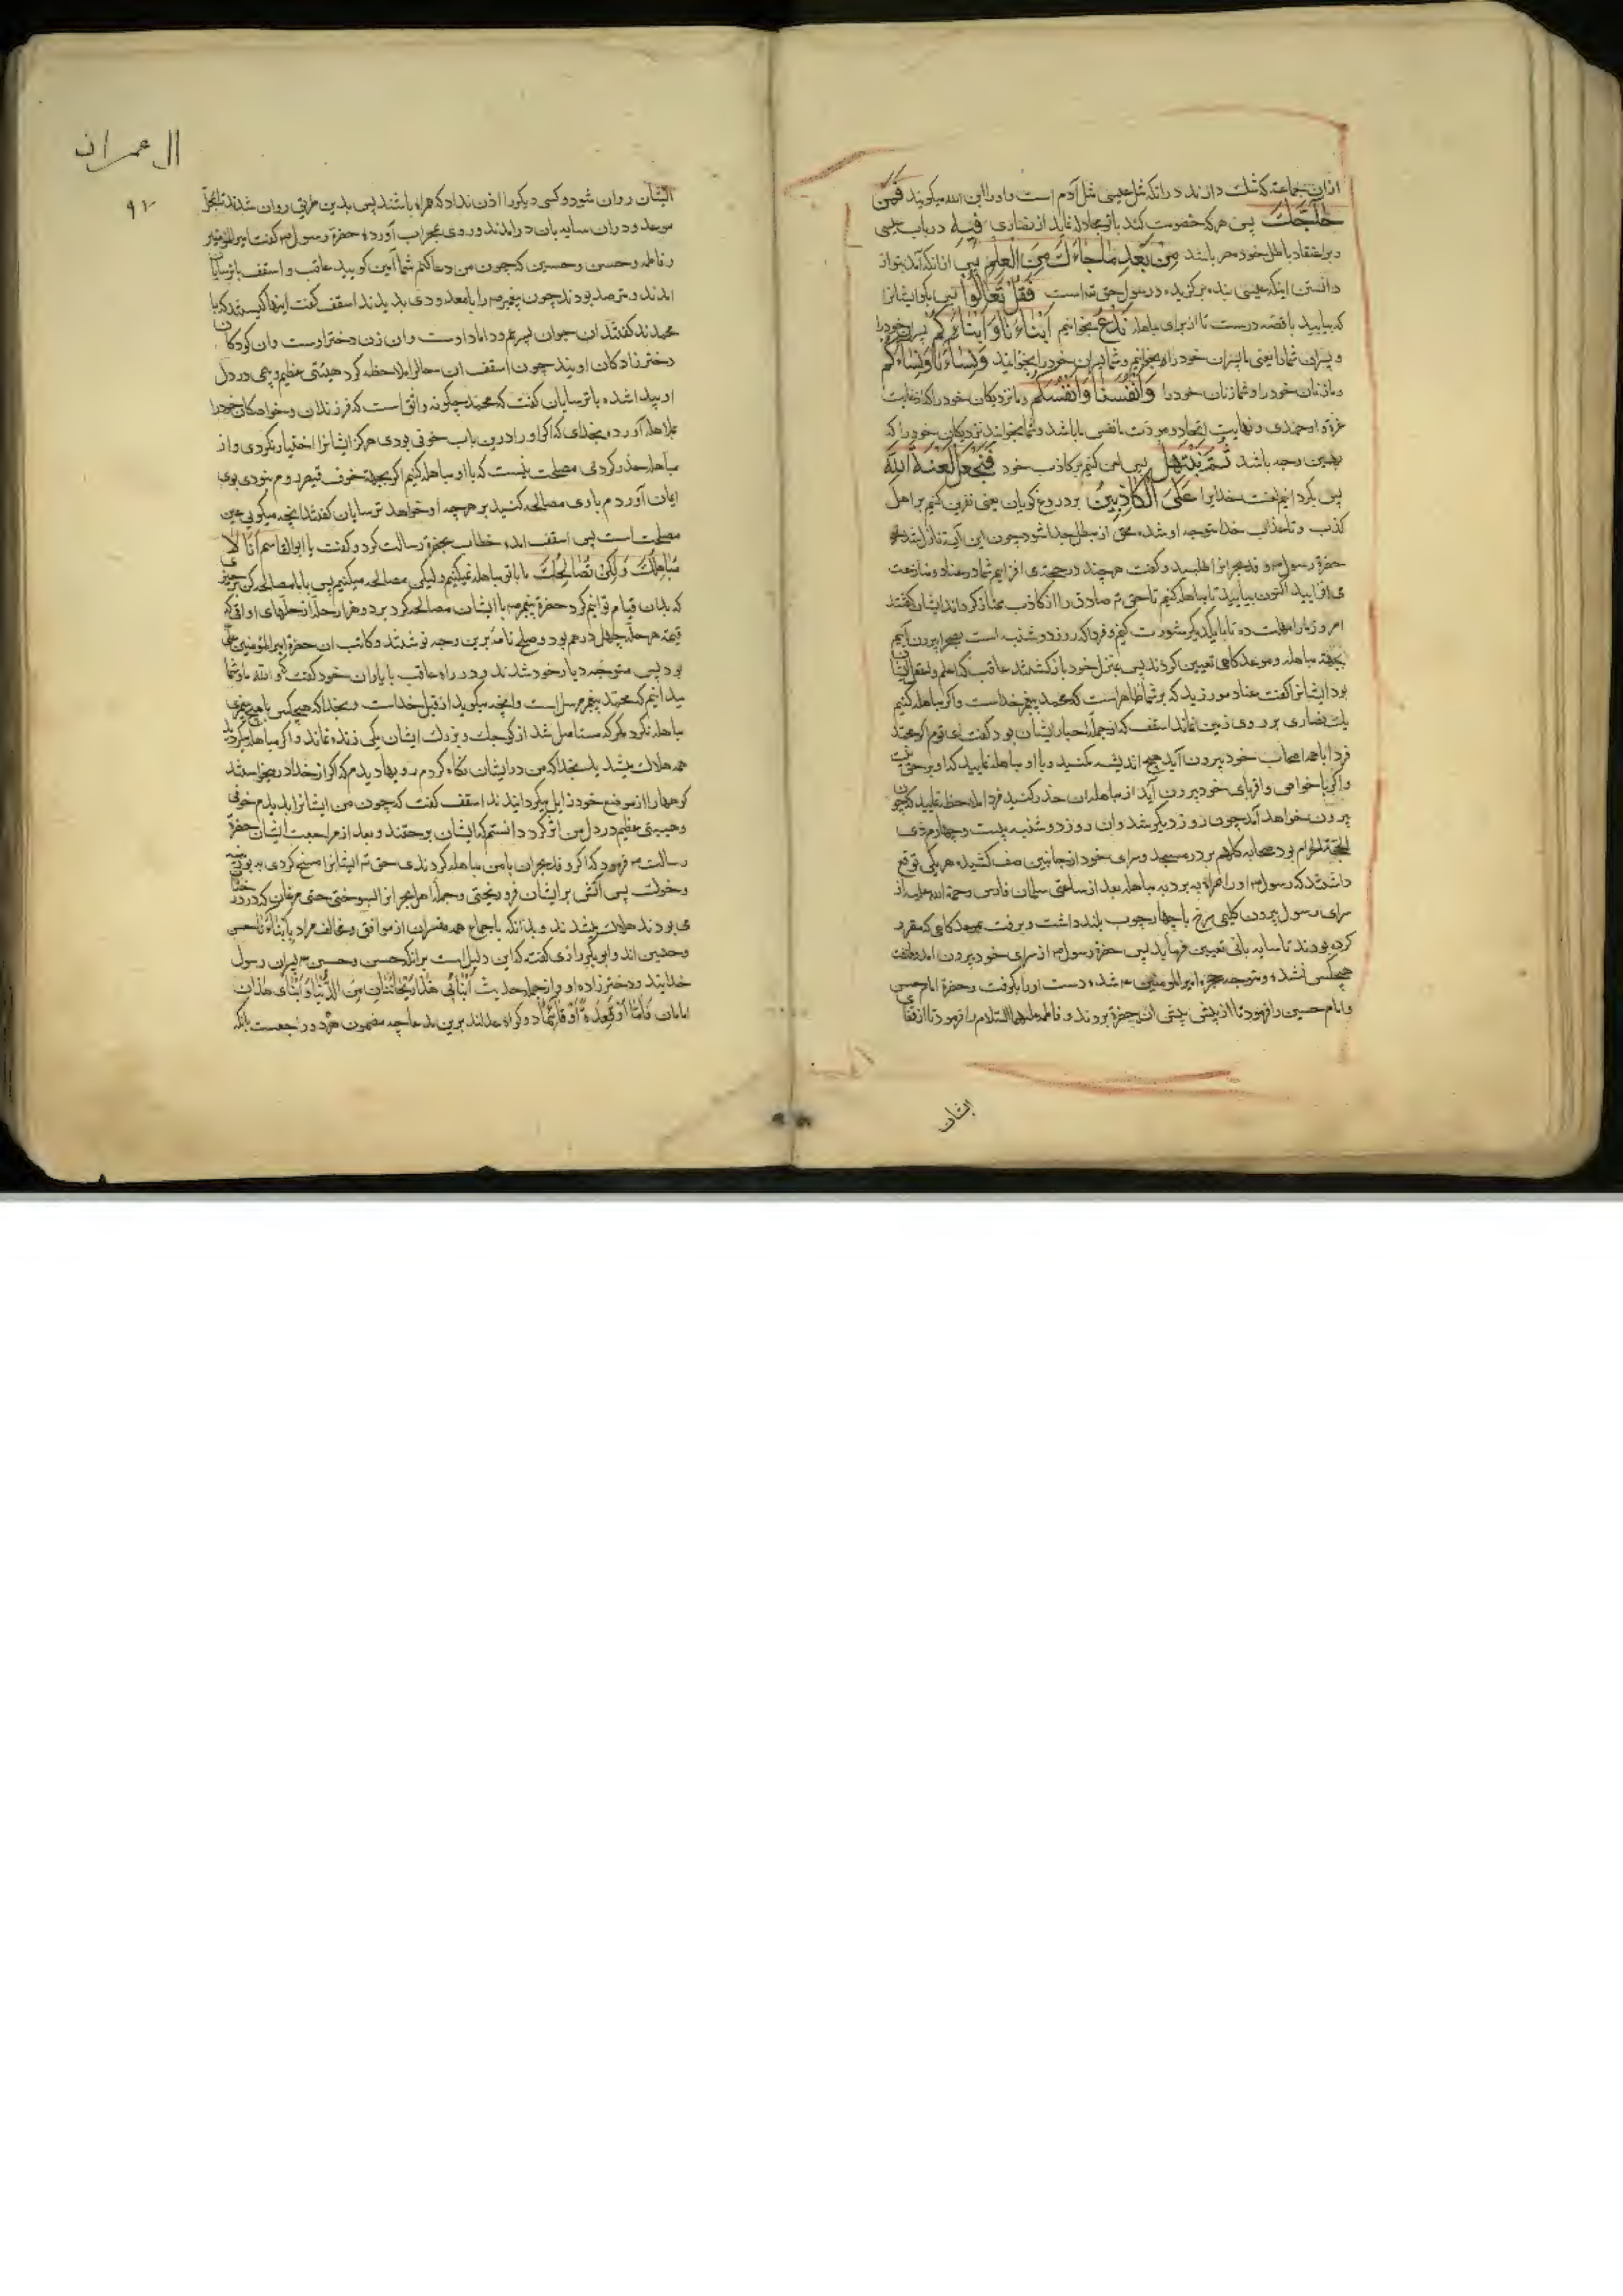 ازان جماعة که شک دارند در آنکه مثل عیسی مثل آدم است و او را ابن الله میگویند فَمَنْ
حَاجَّكَ پس هر که خصومت کند با تو و مجادله نماید از نصاری فِيهِ در باب عیسی
و بر اعتقاد باطل خود مصر باشد مِنْ بَعْدِ مَا جَاءَكَ مِنَ الْعِلْمِ پس از آنکه آمد بتو از
دانستن اینکه عیسی بنده برگزیده و رسول حق تم است فَقُلْ تَعَالَوْا پس بگو ایشانرا
که بیایید با قصد درست تا از برای مباهله نَدْعُ بخوانیم أَبْنَاءَنَا وَأَبْنَاءَكُمْ پسران خود را
و پسران شما را یعنی ما پسران خود را بخوانیم و شما پسران خود را بخوانید وَنِسَاءَنَا وَنِسَاءَكُمْ
و ما زنان خود را و شما زنان خود را وَأَنْفُسَنَا وَأَنْفُسَكُمْ و ما نزدیکان خود را که از غایت
عزة و ارجمندی و نهایت اتحاد و مودت نفس ما باشد و شما بخوانید نزدیکان خود را که
بدین وجه باشد ثُمَّ نَبْتَهِلْ پس لعن کنیم بر کاذب خود فَنَجْعَلْ لَعْنَةَ اللَّهِ
پس بگردانیم لعنت خدایرا عَلَى الْكَاذِبِينَ بر دروغ گویان یعنی نفرین کنیم بر اهل
کذب و تا عذاب خدا متوجه او شده محق از مبطل جدا شود چون این آیت نازل شد
حضرة رسول ص وفد نجران را طلبید و گفت هر چند در حجت می افزایم شما در عناد و منازعت
می افزایید اکنون بیایید تا مباهله کنیم تا حق تم صادق را از کاذب ممتاز گرداند ایشان گفتند
امروز ما را مهلت ده تا با یکدیگر مشورت کنیم و فردا که روز دوشنبه است بصحرا بیرون آییم
بجهة مباهله و موعد کاهی تعیین کردند پس بمنزل خود بازگشتند عاقب که اعلم و اعقل ایشان
بود ایشانرا گفت عناد مورزید که بر شما ظاهر است که محمد پیغمبر خداست و اگر مباهله کنیم
یک نصاری بر روی زمین نماند اسقف که از جمله احبار ایشان بود گفت ای قوم اگر محمد
فردا با همه اصحاب خود بیرون آید هیچ اندیشه مکنید و با او مباهله نمایید که او بر حق نیست
و اگر با خواص و اقربای خود بیرون آید از مباهله ان حذر کنید فردا ملاحظه نمایید که چون
بیرون خواهد آمد چون روز دیگر شد و ان روز دوشنبه بیست و چهارم ذی
الحجة الحرام بود صحابه کلاهم بر در مسجد و سرای خود از جانبین صف کشیده هر یکی توقع
داشتند که رسول ص او را همراه ببرد به مباهله بعد از ساعتی سلمان فارسی رحمة الله علیه از
سرای رسول بیرون کلیمی سرخ با چهار چوب بلند داشت و برفت بموعد کاهی که مقرر
کرده بودند تا سایه بانی تعیین فرماید پس حضرة رسول ص از سرای خود بیرون امد و ملتفت
هیچکس نشده و متوجه حجره امیر المؤمنین ع شد و دست او را بگرفت و حضرة امام حسن
و امام حسین را فرمود تا از پیش پیش ان حضرة بروند و فاطمه علیها السلام را فرمود تا از قفای
ایشان
ال عمران
۹۲
ایشان روان شود و کسی دیگر را اذن نداد که همراه باشند پس بدین طریق روان شدند تا بمحل
موعد و در ان سایه بان درامدند و روی بمحراب آورده حضرة رسول ص گفت امیر المؤمنین
و فاطمه و حسن و حسین که چون من دعا کنم شما آمین گویید عاقب و اسقف با ترسایان
امدند و مترصد بودند چون پیغمبر ص را با معدودی بدیدند اسقف گفت اینها کیستند که با
محمدند گفتند ان جوان پسر عم و داماد اوست و ان زن دختر اوست و ان کودکان
دختر زادکان اویند چون اسقف این حال را ملاحظه کرد هیبتی عظیم و بیمی در دل
او پیدا شده با ترسایان گفت که محمد چگونه واثق است که فرزندان و خواصکان خود را
بمباهله آورده بخدای که اگر او را درین باب خوفی بودی هرگز ایشانرا اختیار نکردی و از
مباهله حذر کردی مصلحت نیست که با او مباهله کنیم اگر بجهة خوف قیصر روم نبودی بوی
ایمان آوردم باری مصالحه کنید بر هر چه او خواهد ترسایان گفتند انچه میگویی عین
مصلحت است پس اسقف امده خطاب بحضرة رسالت کرد و گفت یا ابو القاسم اَنَّا لَا
نُبَاهِلُكَ وَلَكِنْ نُصَالِحُكَ ما با تو مباهله نمیکنیم ولیکن مصالحه میکنیم پس با ما مصالحه کن بر چیزی
که بدان قیام توانیم کرد حضرة پیغمبر ص با ایشان مصالحه کرد بر دو هزار حله از حلهای اواقی که
قیمة هر حله چهل درهم بود و صلح نامه برین وجه نوشتند و کاتب ان حضرة امیر المؤمنین علی
بود پس متوجه دیار خود شدند و در راه عاقب با یاران خود گفت که و الله ما و شما
میدانیم که محمد پیغمبر مرسل است و انچه میگوید از قبل خداست و بخدا که هیچ کس با هیچ پیغمبری
مباهله نکرد مگر که مستاصل شد از کوچک و بزرگ ایشان یکی زنده نماند و اگر مباهله میکردید
همه هلاک میشدید بخدا که من در ایشان نگاه کردم رویها دیدم که اگر از خدا درخواستند
کوهها را از موضع خود زایل میگردانیدند اسقف گفت که چون من ایشانرا بدیدم خوفی
و هیبتی عظیم در دل من اثر کرد دانستم که ایشان بر حقند و بعد از مراجعت ایشان حضرة
رسالت ص فرمود که اگر وفد نجران با من مباهله کردندی حق تم ایشانرا مسخ کردی به بوزینه
و خوک پس اتش بر ایشان فرو ریختی و جمله اهل نجران را بسوختی حتی مرغان که در درختان
می بودند هلاک میشدند و بدانکه باجماع همه مفسران از موافق و مخالف مراد بابناءنا حسن
و حسین اند و ابو بکر رازی گفته که این دلیل است بر آنکه حسن و حسین ع پسران رسول
خدایند و دختر زاده او و از جمله حدیث اَبْنَائِي هَذَا رَيْحَانَتَانِ مِنَ الدُّنْيَا وَ اَبْنَاى هَذَانِ
امامان قَامَا اَوْ قَعَدَا دو گواه عدلند برین مدعا چه مضمون هر دو راجعست بانکه